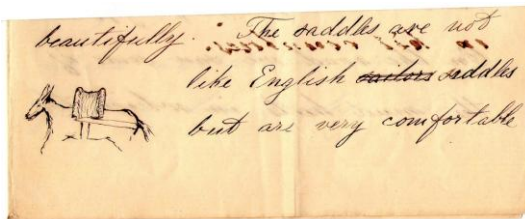 beautifully. The saddles are not
like English sailors saddles
but are very comfortable